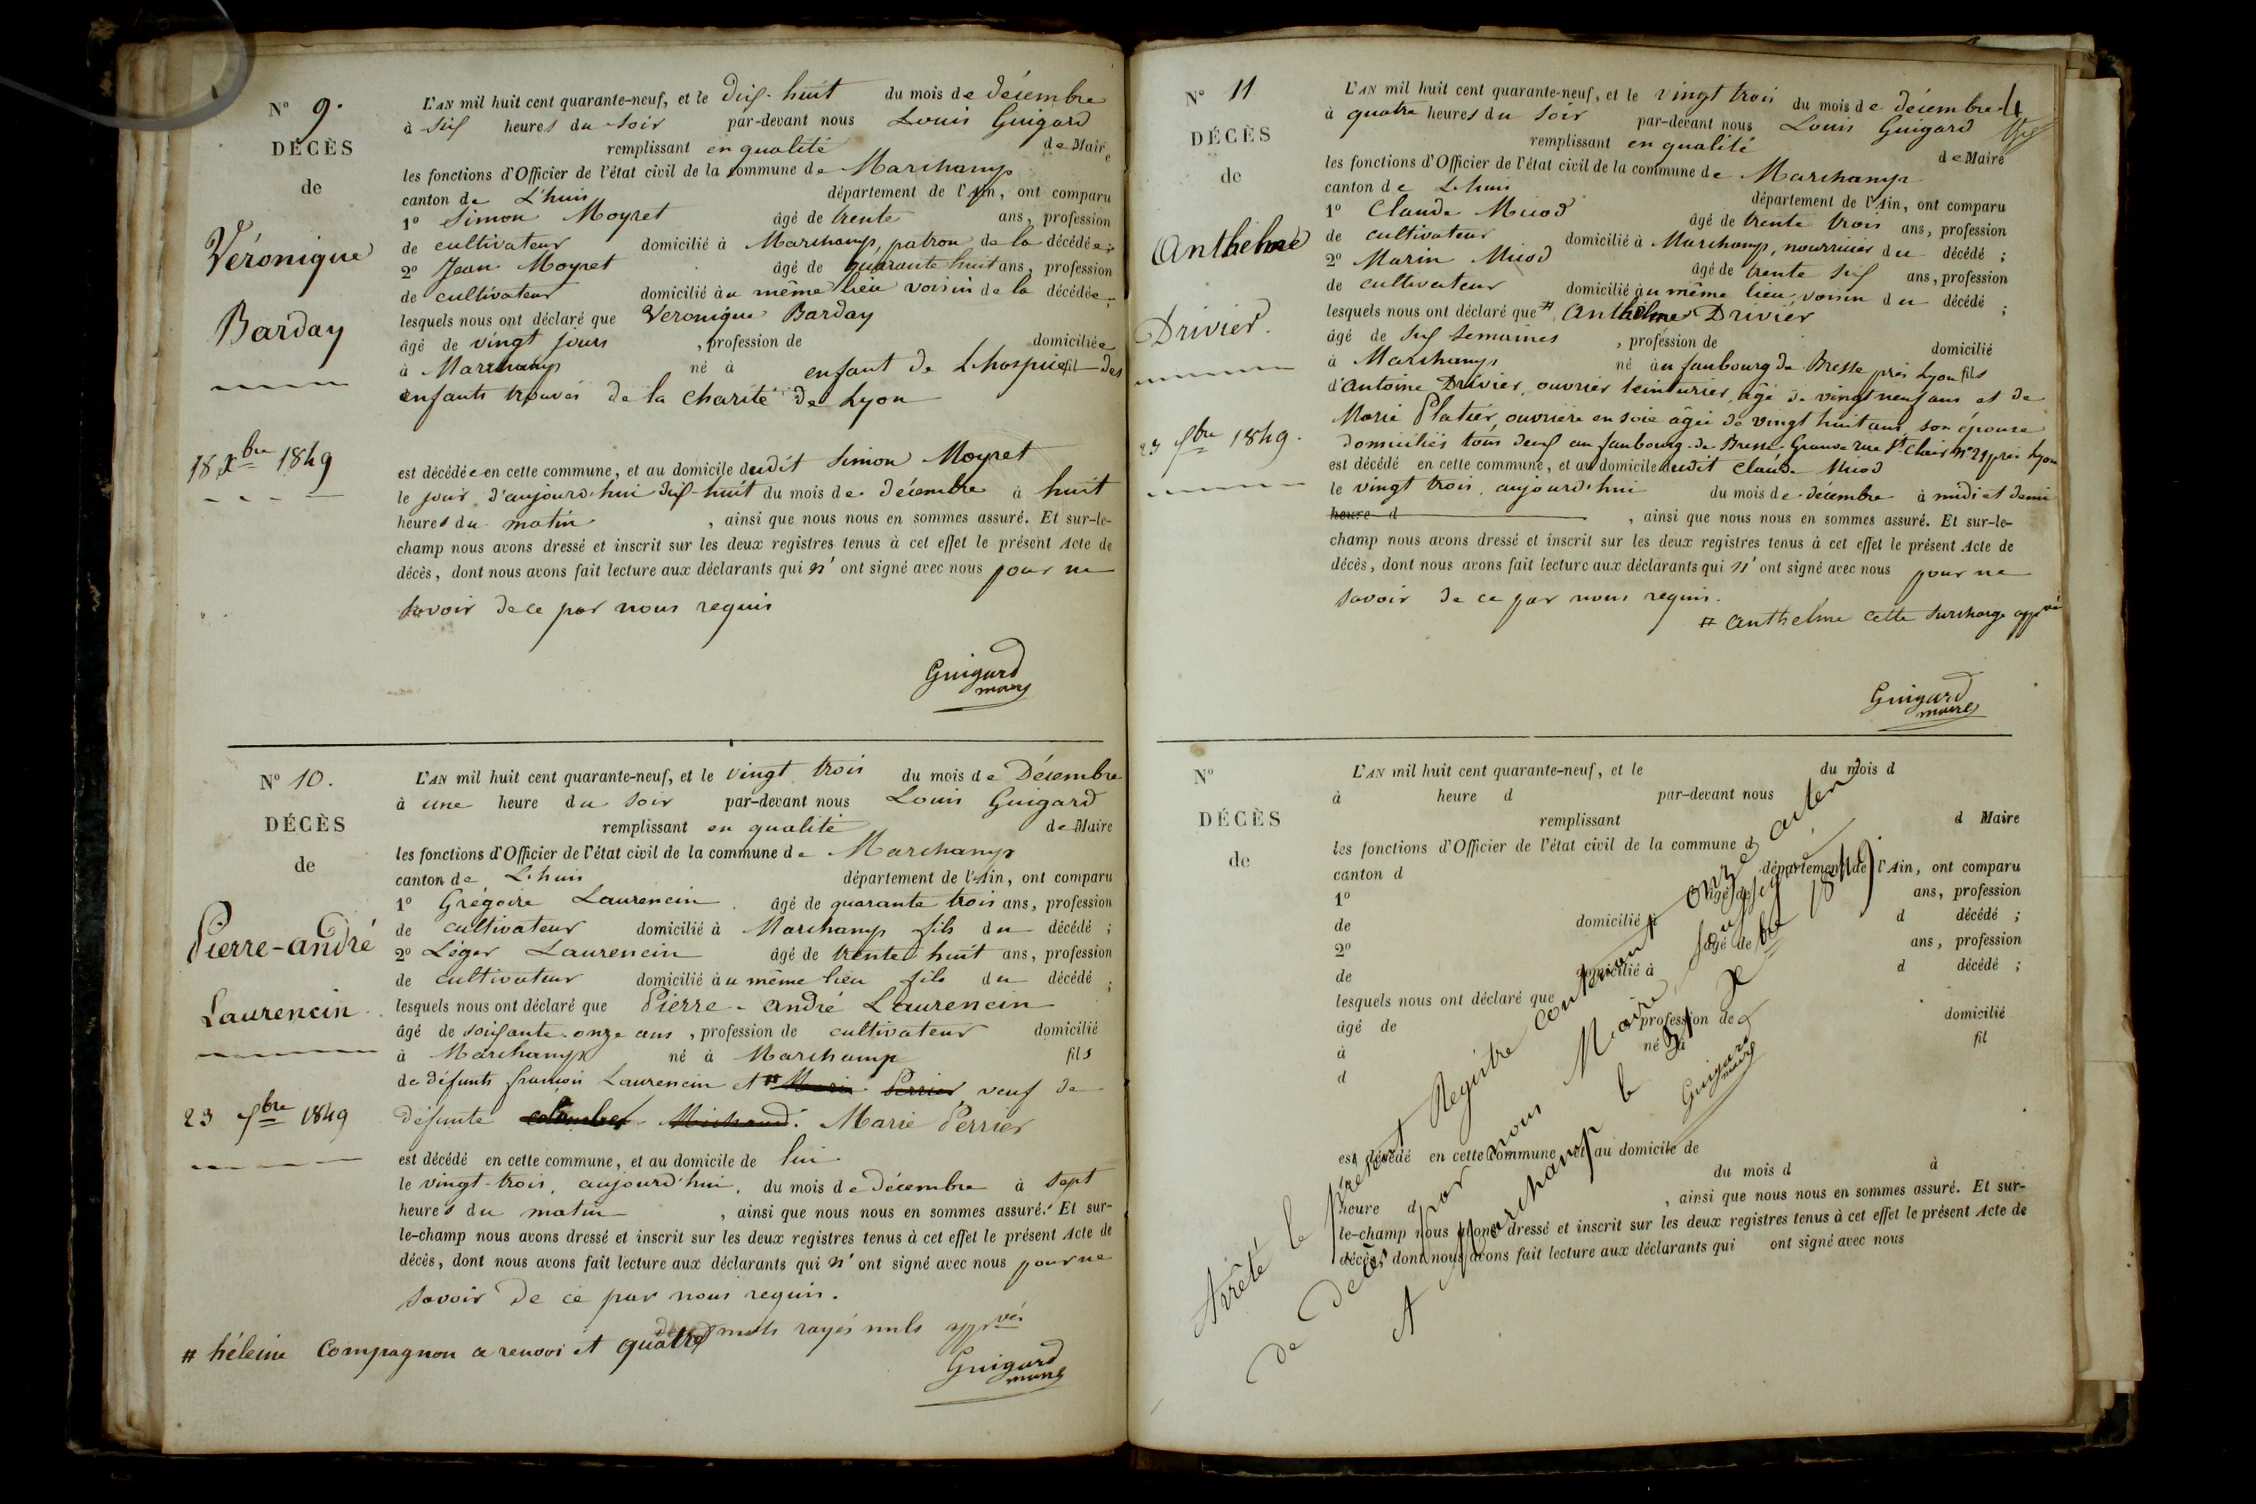 N° 9.
DÉCÈS
de
Véronique
Barday
18 Xbre 1849
L'AN mil huit cent quarante-neuf, et le dix-huit du mois de décembre
à six heures du soir par-devant nous Louis Guigard
remplissant en qualité de Maire
les fonctions d'Officier de l'état civil de la commune de Marchamp
canton de L'huis département de l'Ain, ont comparu
1° Simon Moyret âgé de trente ans, profession
de cultivateur domicilié à Marchamp, patron de la décédée;
2° Jean Moyret âgé de quarante huit ans, profession
de cultivateur domicilié au même lieu voisin de la décédée;
lesquels nous ont déclaré que Véronique Barday
âgé de vingt jours , profession de domiciliée
à Marchamp né à enfant de L'hospice fil des
enfants trouvés de la Charité de Lyon
est décédée en cette commune, et au domicile dudit Simon Moyret
le jour d'aujourd'hui dix-huit du mois de décembre à huit
heures du matin , ainsi que nous nous en sommes assuré. Et sur-le-
champ nous avons dressé et inscrit sur les deux registres tenus à cet effet le présent Acte de
décès, dont nous avons fait lecture aux déclarants qui n'ont signé avec nous pour ne
savoir de ce par nous requis
Guigard
maire
N° 10.
DÉCÈS
de
Pierre-andré
Laurencin
23 Xbre 1849
L'AN mil huit cent quarante-neuf, et le vingt trois du mois de Décembre
à une heure du soir par-devant nous Louis Guigard
remplissant en qualité de Maire
les fonctions d'Officier de l'état civil de la commune de Marchamp
canton de L'huis département de l'Ain, ont comparu
1° Grégoire Laurencin âgé de quarante trois ans, profession
de cultivateur domicilié à Marchamp fils du décédé;
2° Léger Laurencin âgé de trente huit ans, profession
de cultivateur domicilié au même lieu fils du décédé;
lesquels nous ont déclaré que Pierre-andré Laurencin
âgé de soixante-onze ans, profession de cultivateur domicilié
à Marchamp né à Marchamp fils
de défunts françois Laurencin et # Marie Perrier veuf de
défunte Michaud. Marie Perrier
est décédé en cette commune, et au domicile de lui
le vingt-trois, aujourd'hui, du mois de décembre à sept
heures du matin , ainsi que nous nous en sommes assuré. Et sur-
le-champ nous avons dressé et inscrit sur les deux registres tenus à cet effet le présent Acte de
décès, dont nous avons fait lecture aux déclarants qui n'ont signé avec nous pour ne
savoir de ce par nous requis.
# héleine Compagnon a renvoi et quatre mots rayés nuls appvés
Guigard
maire
4
N° 11
DÉCÈS
de
Anthelme
Drivier.
23 Xbre 1849.
L'AN mil huit cent quarante-neuf, et le vingt trois du mois de décembre
à quatre heures du soir par-devant nous Louis Guigard
remplissant en qualité de Maire
les fonctions d'Officier de l'état civil de la commune de Marchamp
canton de L'huis département de l'Ain, ont comparu
1° Claude Micod âgé de trente trois ans, profession
de cultivateur domicilié à Marchamp, nourricier du décédé;
2° Marin Micod âgé de trente six ans, profession
de cultivateur domicilié au même lieu, voisin du décédé;
lesquels nous ont déclaré que # Anthelme Drivier
âgé de six semaines , profession de domicilié
à Marchamp né au faubourg de Bresse près Lyon fils
d'Antoine Drivier, ouvrier teinturier, âgé de vingt neuf ans et de
Marie Platier, ouvrière en soie âgée de vingt huit ans, son épouse
domiciliés tous deux au faubourg de Bresse, Grande rue St Clair n° 21 près Lyon
est décédé en cette commune, et au domicile dudit Claude Micod
le vingt trois, aujourd'hui du mois de décembre à midi et demi
heure d , ainsi que nous nous en sommes assuré. Et sur-le-
champ nous avons dressé et inscrit sur les deux registres tenus à cet effet le présent Acte de
décès, dont nous avons fait lecture aux déclarants qui n'ont signé avec nous pour ne
savoir de ce par nous requis.
# Anthelme cette surcharge appvée
Guigard
maire
N°
DÉCÈS
de
L'AN mil huit cent quarante-neuf, et le du mois d
à heure d par-devant nous
remplissant d Maire
les fonctions d'Officier de l'état civil de la commune d
canton d département de l'Ain, ont comparu
1° âgé de ans, profession
de domicilié à d décédé;
2° âgé de ans, profession
de domicilié à d décédé;
lesquels nous ont déclaré que
âgé de profession de domicilié
à né à fil
d
est décédé en cette commune, et au domicile de
du mois d à
heure d , ainsi que nous nous en sommes assuré. Et sur-
le-champ nous avons dressé et inscrit sur les deux registres tenus à cet effet le présent Acte de
décès, dont nous avons fait lecture aux déclarants qui ont signé avec nous
Arrêté le présent Registre contenant onze actes
de décès par nous Maire soussigné.
A Marchamp le 31 Xbre 1849.
Guigard
maire